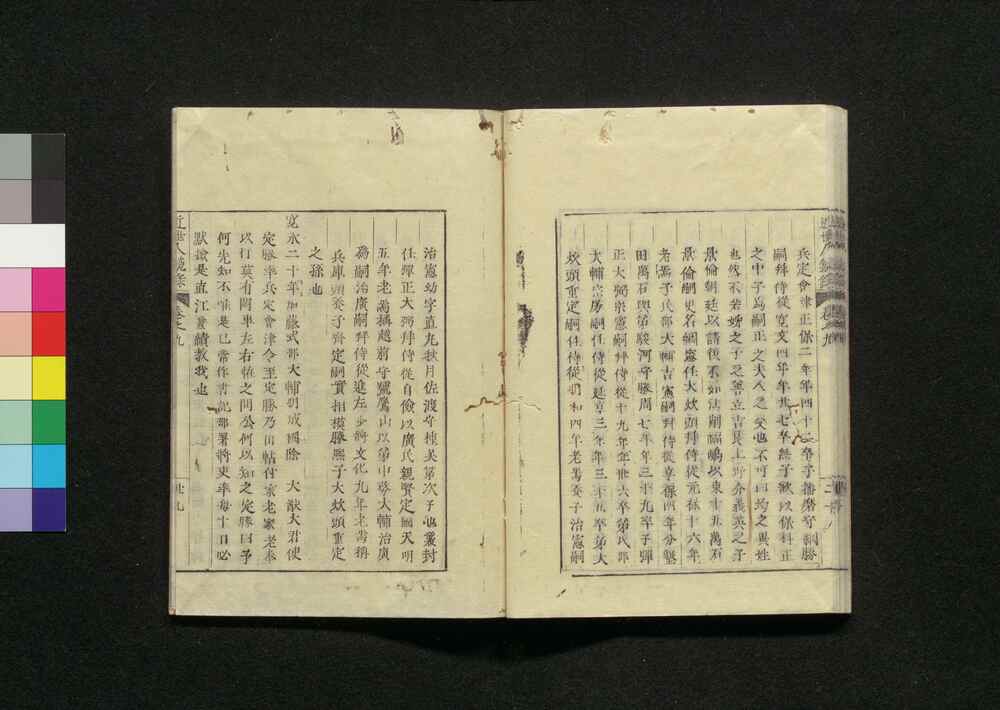 兵定會津正保二年年四十卒子播磨守綱勝
嗣拜侍從寬文四年年廿七卒無子歛以保科正
之中子爲嗣正之夫人之女也不可曰均之異姓
也然不若姊之子之善立吉良上野介義英之子
景倫嗣史名綱憲任大炊頭拜侍從元祿十六年
老喬子民部大輔吉憲嗣拜侍從享保四年分墾
田萬石與弟駿河守勝周七年年三十九卒子彈
正大弼宗憲嗣拜侍從十九年年廿六卒弟民部
大輔宗房嗣任侍從延享三年年三十五卒弟大
炊頭重定嗣任侍從明和四年老喬養子治憲嗣
治憲幼字直丸秋月佐渡守種美第次子也襲封
任彈正大弼拜侍從自儉以廣氏親賢定國天明
五年老喬稱越前守號鷹山以弟中務大輔治廣
爲嗣治廣嗣拜侍從進左少將文化九年老喬稱
兵庫頭養子齊定嗣實相模勝熙子大炊頭重定
之孫也
寬永二十年加藤式部大輔明成國除 大猷大君使
定勝率兵定會津令至定勝乃出帖付家老家老奉
以行莫有鬨車左右恠之問公何以知之定勝曰予
何先知不唯是已常作書記部署將吏率每十日必
默撿是直江兼續敎我也
近世人鏡錄 卷之九 廿九